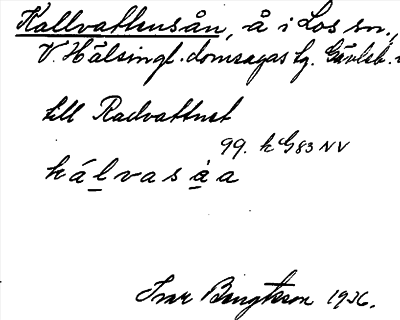 Kallvattusån, å i Los sn.,
V. Hälsingl. domsagas tg. Gävleb.
till Radvattnet
99. k G83 NV
kálvasåa
Ivar Bengtsson 1936.